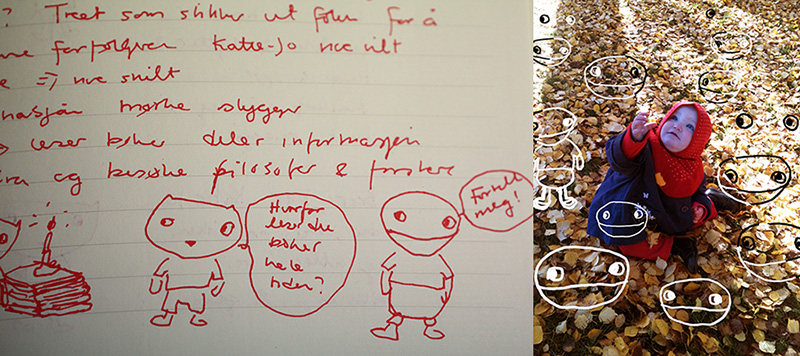 ? Treet som stikker ut foten for å
forfølgeren Katte-Jo noe vilt
e => noe snilt
mørke skygger
leser bøker deler informasjon
og besøke filosofer & forskere
Hvorfor
leser du
bøker
hele
tiden?
Fortell
meg!